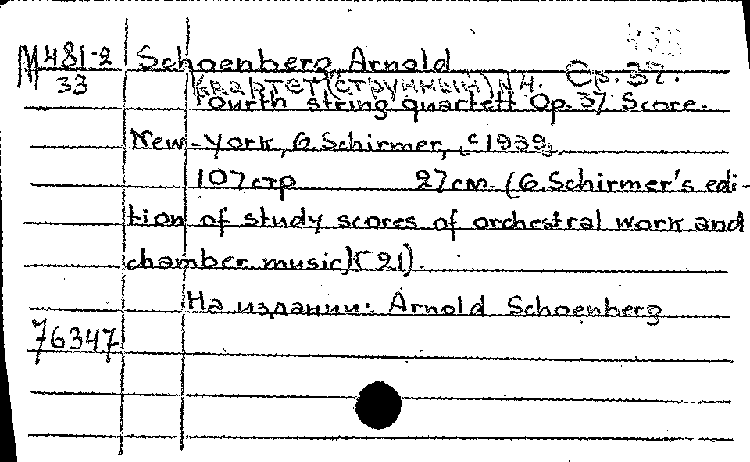 М481-2 Schoenberg Arnold
33 [Квартет (струнный) N 4. Op. 37.]
Fourth string quartett Op. 37. Score.
New-York, G. Schirmer, c1939.
107 стр 27 см. (G. Schirmer's edi-
tion of study scores of orchestral work and
chamber music) (21).
На издании: Arnold Schoenberg
76347